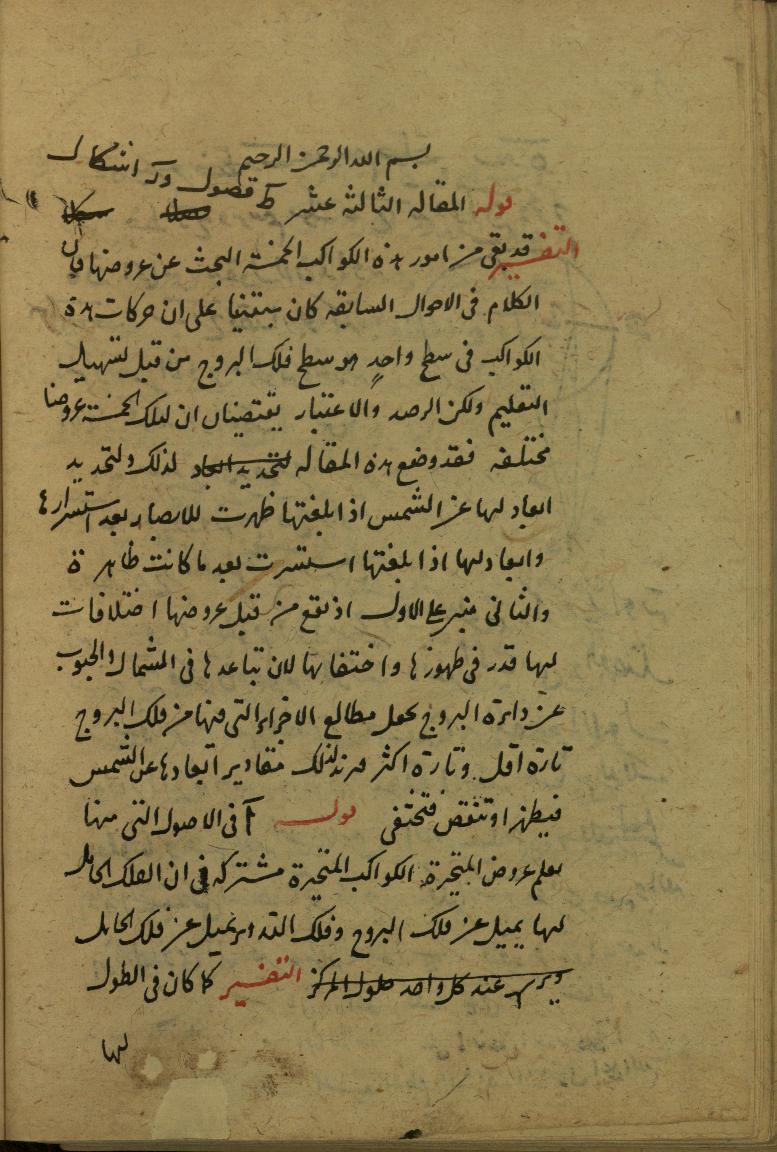 بسم الله الرحمن الرحيم
قوله المقاله الثالثة عشر ط فصول و اشكال
التفسير قد بقى من امور هذه الكواكب الخمسة البحث عن عروضها فان
الكلام فى الاحوال السابقه كان مبتنيا على ان حركات هذه
الكواكب فى سطح واحدٍ هو سطح فلك البروج من قبل تسهيل
التعليم ولكن الرصد والاعتبار يقتضيان ان لتلك الخمسة عروضا
مختلفه فقد وضع هذه المقاله لتحديد ابعاد لذلك ولتحديد
ابعاد لها عن الشمس اذا بلغتها ظهرت للابصار بعد استسرارها
وابعاد لها اذا بلغتها استسرت بعد ما كانت ظاهرة
والثانى مبنى على الاول اذ يقع من قبل عروضها اختلافات
لها قدر فى ظهورها واختفائها لان تباعدها فى الشمال والجنوب
عن دائرة البروج يجعل مطالع الاجزاء التى فيها من فلك البروج
تارة اقل وتارة اكثر فيزيد لذلك مقادير ابعادها عن الشمس
فيظهر او تنقص فتختفى قوله آ فى الاصول التى منها
يعلم عروض المتحيرة الكواكب المتحيرة مشتركه فى ان الفلك الحامل
لها يميل عن فلك البروج وفلك التدوير يميل عن فلك الحامل
عند كل واحد التفسير كما كان فى الطول
لها